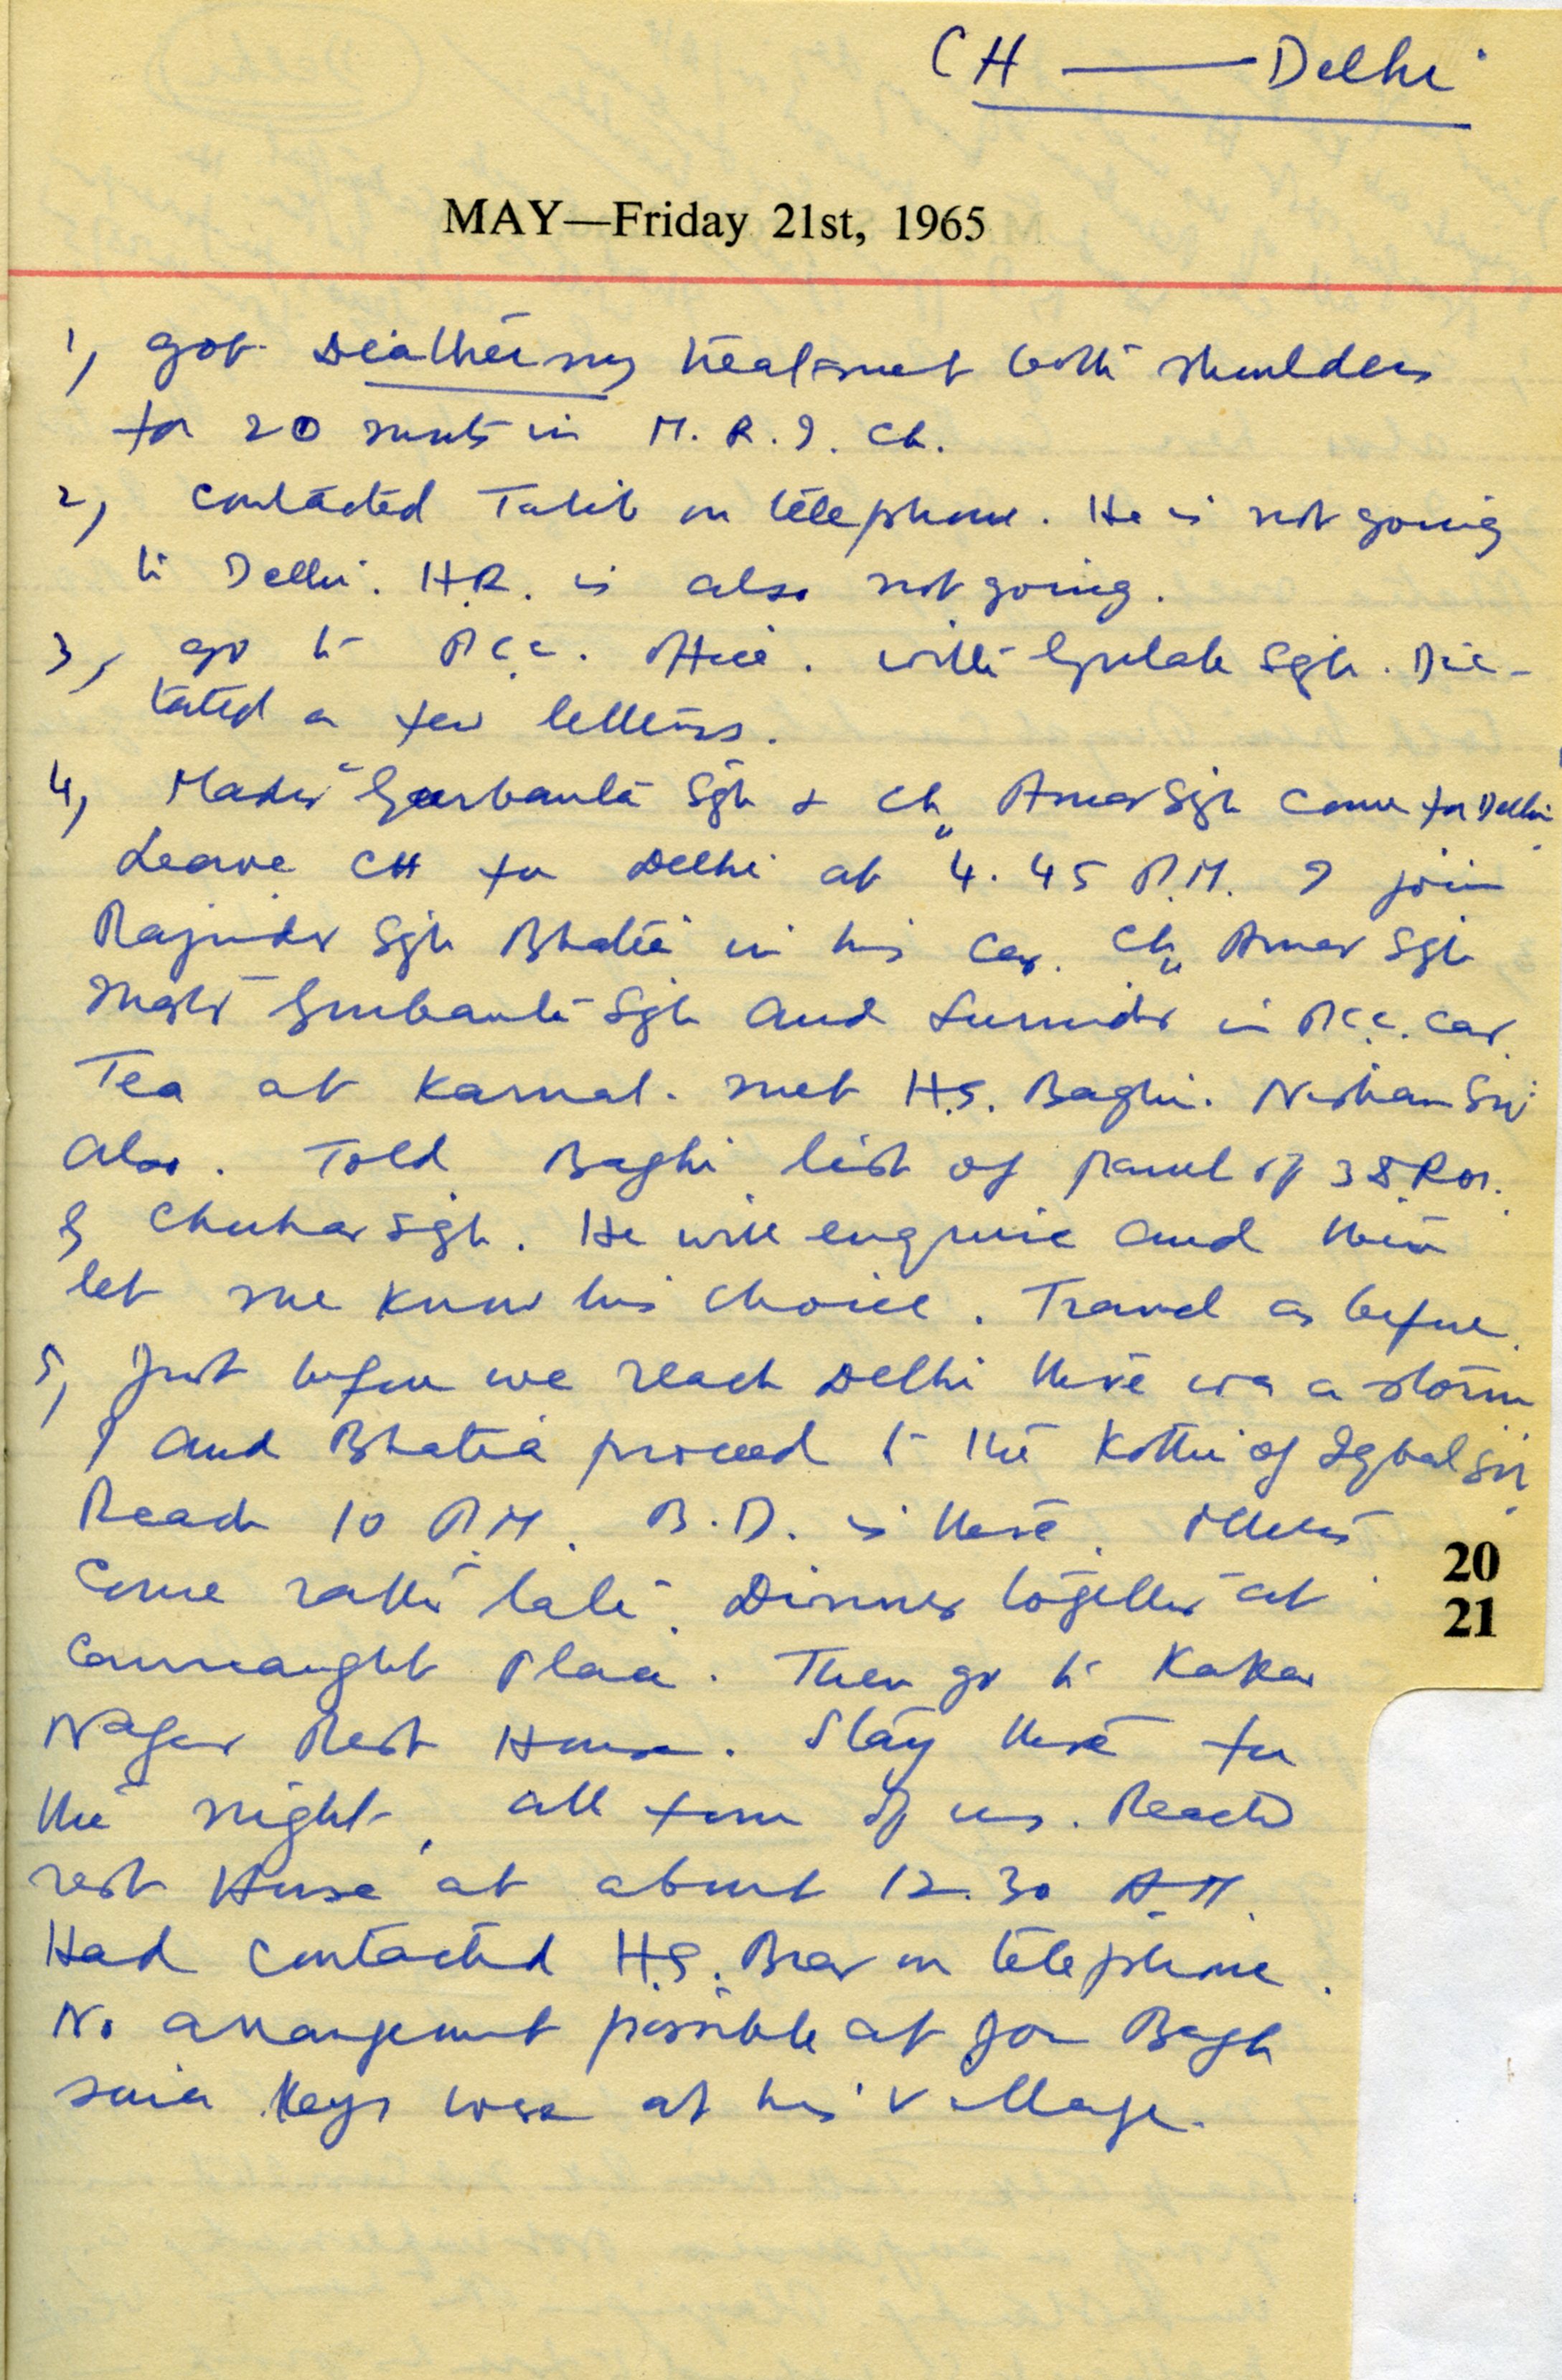 CH — Delhi
MAY—Friday 21st, 1965
1, got Diathermy treatment both shoulders
for 20 mnts in M. R. I. Ch.
2, contacted Talib on telephone. He is not going
to Delhi. H.R. is also not going.
3, go to P.C.C. Office. with Gulab Sgh. Dic-
tated a few letters.
4, Gurbanta Sgh & Ch. Amar Sgh come for Delhi
Leave CH for Delhi at 4.45 P.M. I join
Rajinder Sgh Bhatia in his car. Ch. Amar Sgh
Gurbanta Sgh and Surinder in P.C.C. car.
Tea at Karnal. met H.S. Baghi. Nishan
also. Told Baghi list of panel of 3
& Chuhar Sgh. He will enquire and then
let me know his choice. Travel as before.
5, Just before we reach Delhi there was a storm
I and Bhatia proceed to the Kothi of Iqbal
Reach 10 P.M. B.D. is there. Others
come rather late. Dinner together at
Connaught Place. Then go to Kaka
Nagar Rest House. Stay there for
the night, all four of us. Reached
rest House at about 12.30 A.M.
Had contacted H.S. Brar on telephone.
No arrangement possible at Jor Bagh
since keys were at his village.
20
21